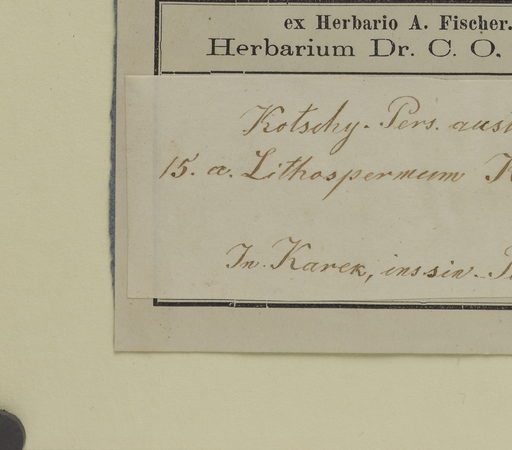 ex Herbario A. Fischer.
Herbarium Dr. C. O.
Kotschy. Pers. aust
15. a. Lithospermum K
In Karek, ins. sin. P